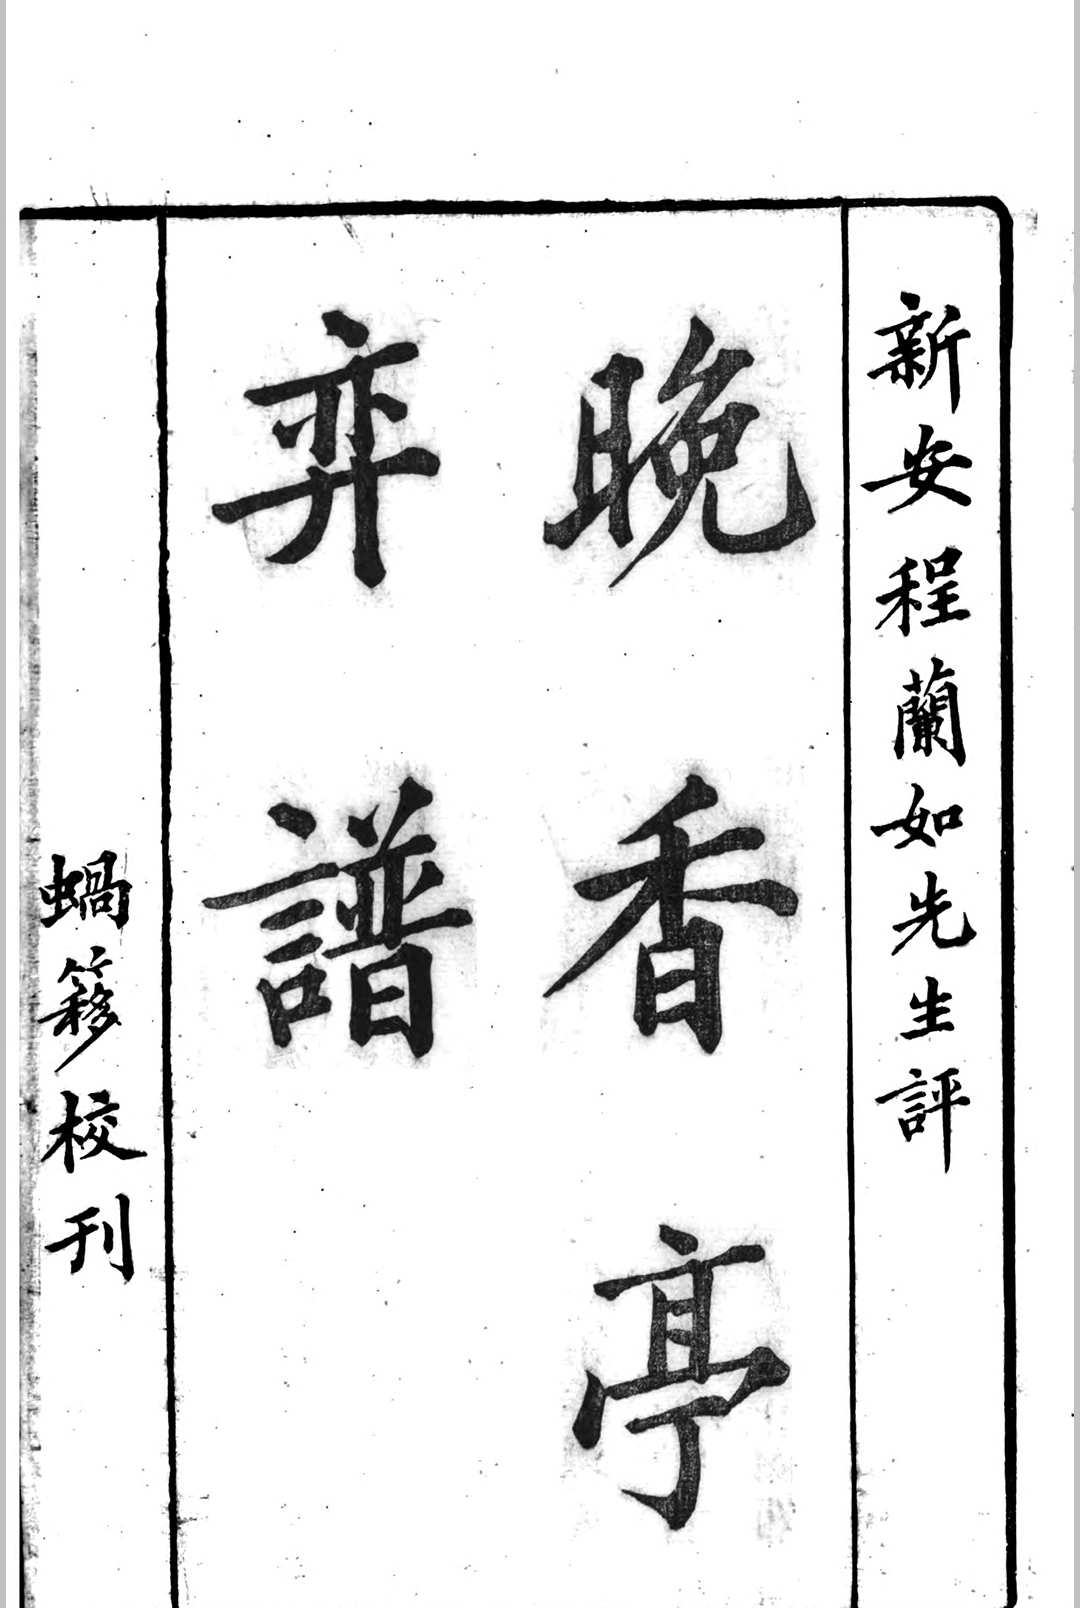 新安程蘭如先生評
晚香亭
弈譜
蝸簃校刊